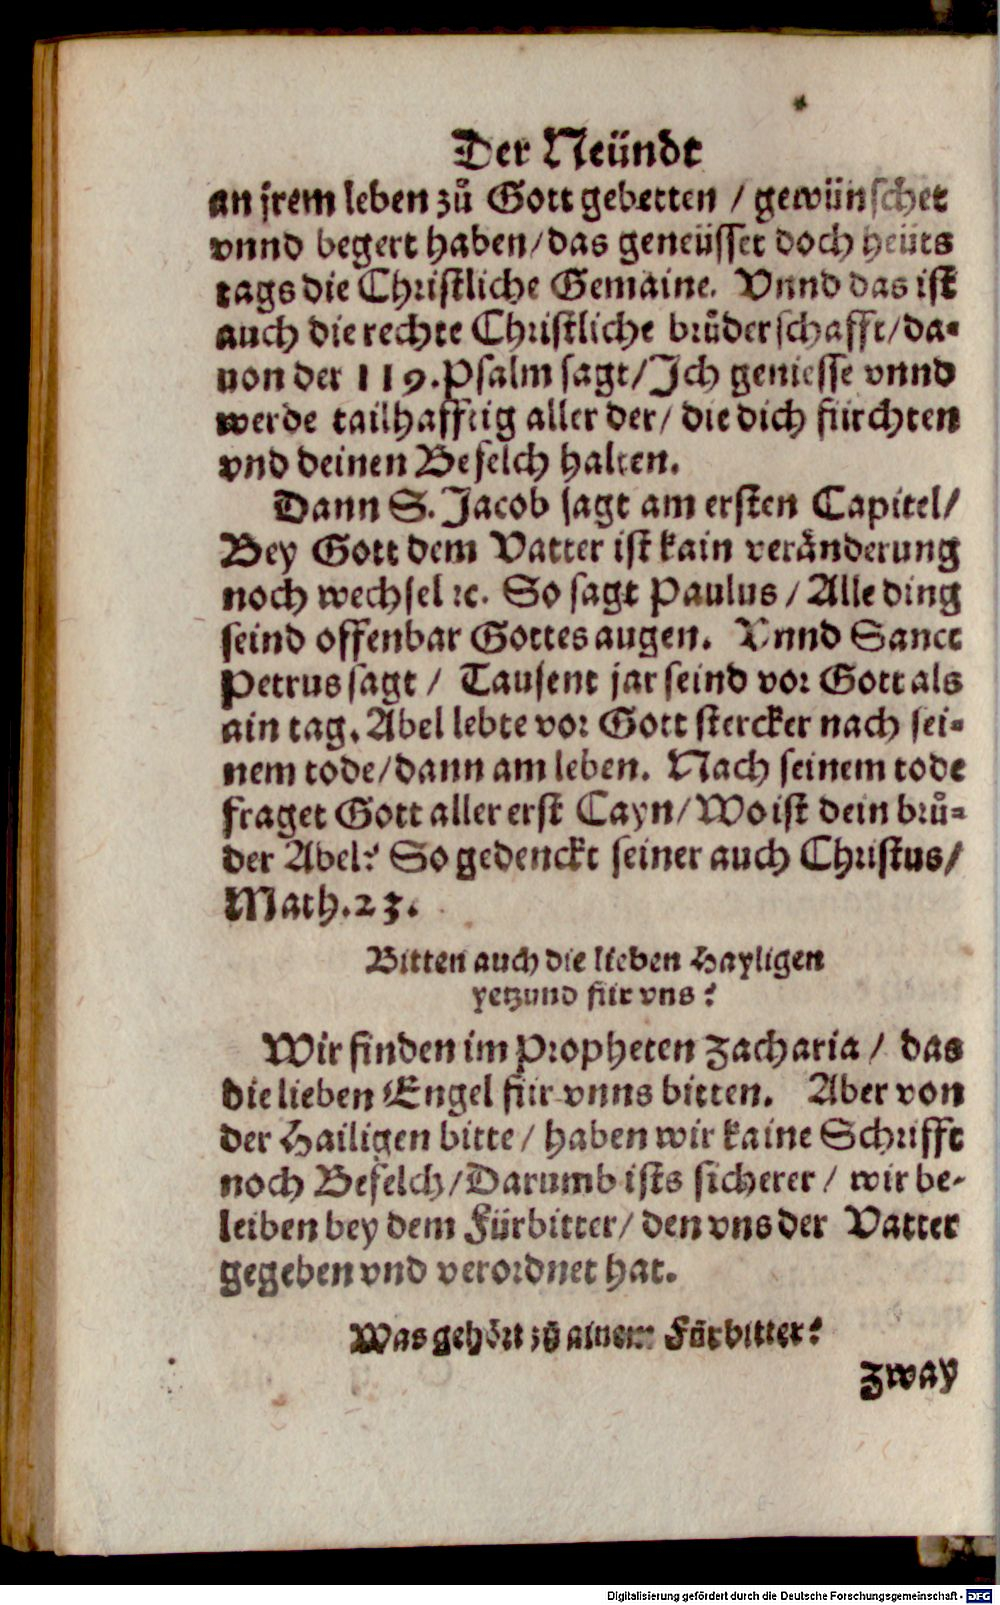 Der Neündt
an jrem leben zů Gott gebetten / gewünschet
vnnd begert haben/das geneüsset doch heüts
tags die Christliche Gemaine. Vnnd das ist
auch die rechte Christliche brůderschafft/da-
uon der 119.Psalm sagt/Ich geniesse vnnd
werde tailhafftig aller der/ die dich fürchten
vnd deinen Befelch halten.
Dann S. Jacob sagt am ersten Capitel/
Bey Gott dem Vatter ist kain veränderung
noch wechsel ꝛc. So sagt Paulus / Alle ding
seind offenbar Gottes augen. Vnnd Sanct
Petrus sagt / Tausent jar seind vor Gott als
ain tag. Abel lebte vor Gott stercker nach sei-
nem tode/dann am leben. Nach seinem tode
fraget Gott aller erst Cayn/Wo ist dein brů-
der Abel? So gedenckt seiner auch Christus/
Math.23.
Bitten auch die lieben Hayligen
yetzund für vns?
Wir finden im Propheten Zacharia / das
die lieben Engel für vnns bitten. Aber von
der Hailigen bitte / haben wir kaine Schrifft
noch Befelch/Darumb ists sicherer / wir be-
leiben bey dem Fürbitter/ den vns der Vatter
gegeben vnd verordnet hat.
Was gehört zů ainem Fürbitter?
Zway
Digitalisierung gefördert durch die Deutsche Forschungsgemeinschaft - DFG